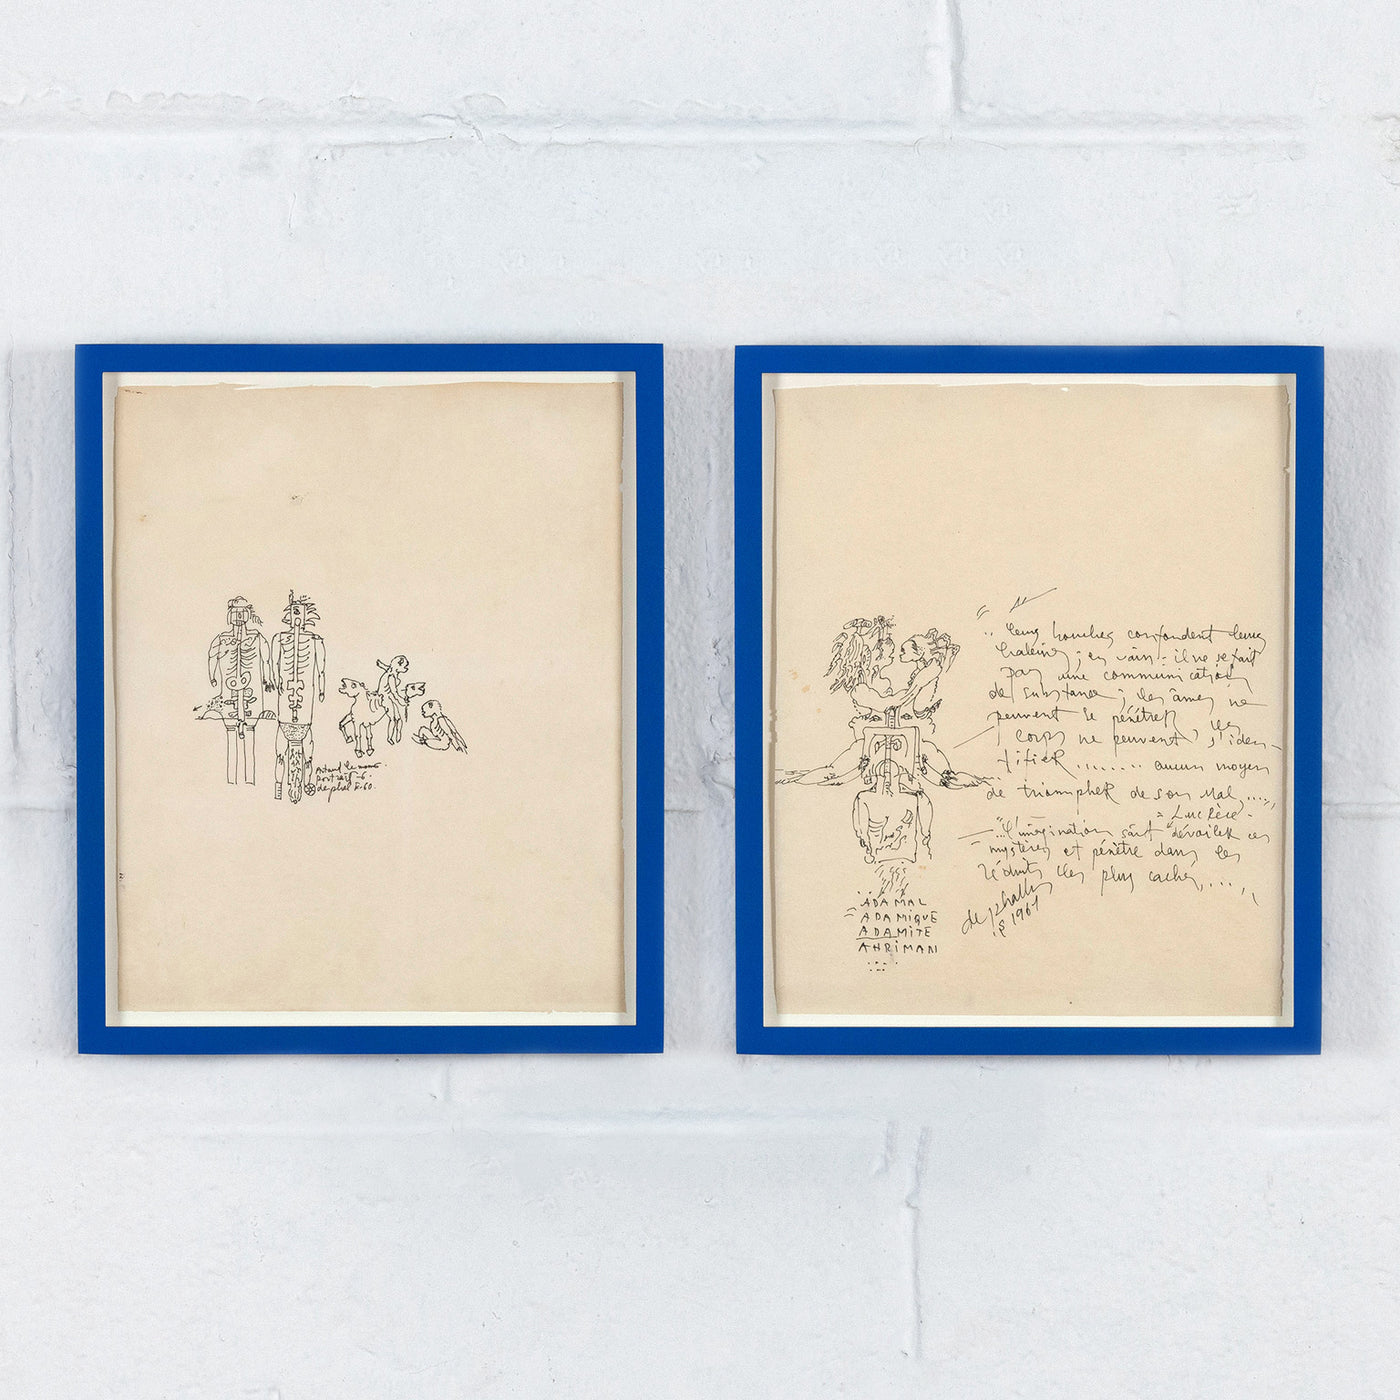 Artaud le momo.
portrait-6.
de phal k-60.
"leurs bouches confondent leurs
haleines; en vain: il ne se fait
pas une communication
de substance; les âmes ne
peuvent se pénétrer les
corps ne peuvent s'iden-
tifieR........ aucun moyen
de triompheR de son Mal,....,
= Lucrèce -
-"...l'imagination sait dévoileR ces
mystères et pénètre dans les
réduits les plus cachés,....,
de phallus
1961
ADAMAL
ADAMiQUE
ADAMiTE
AHRiMAN